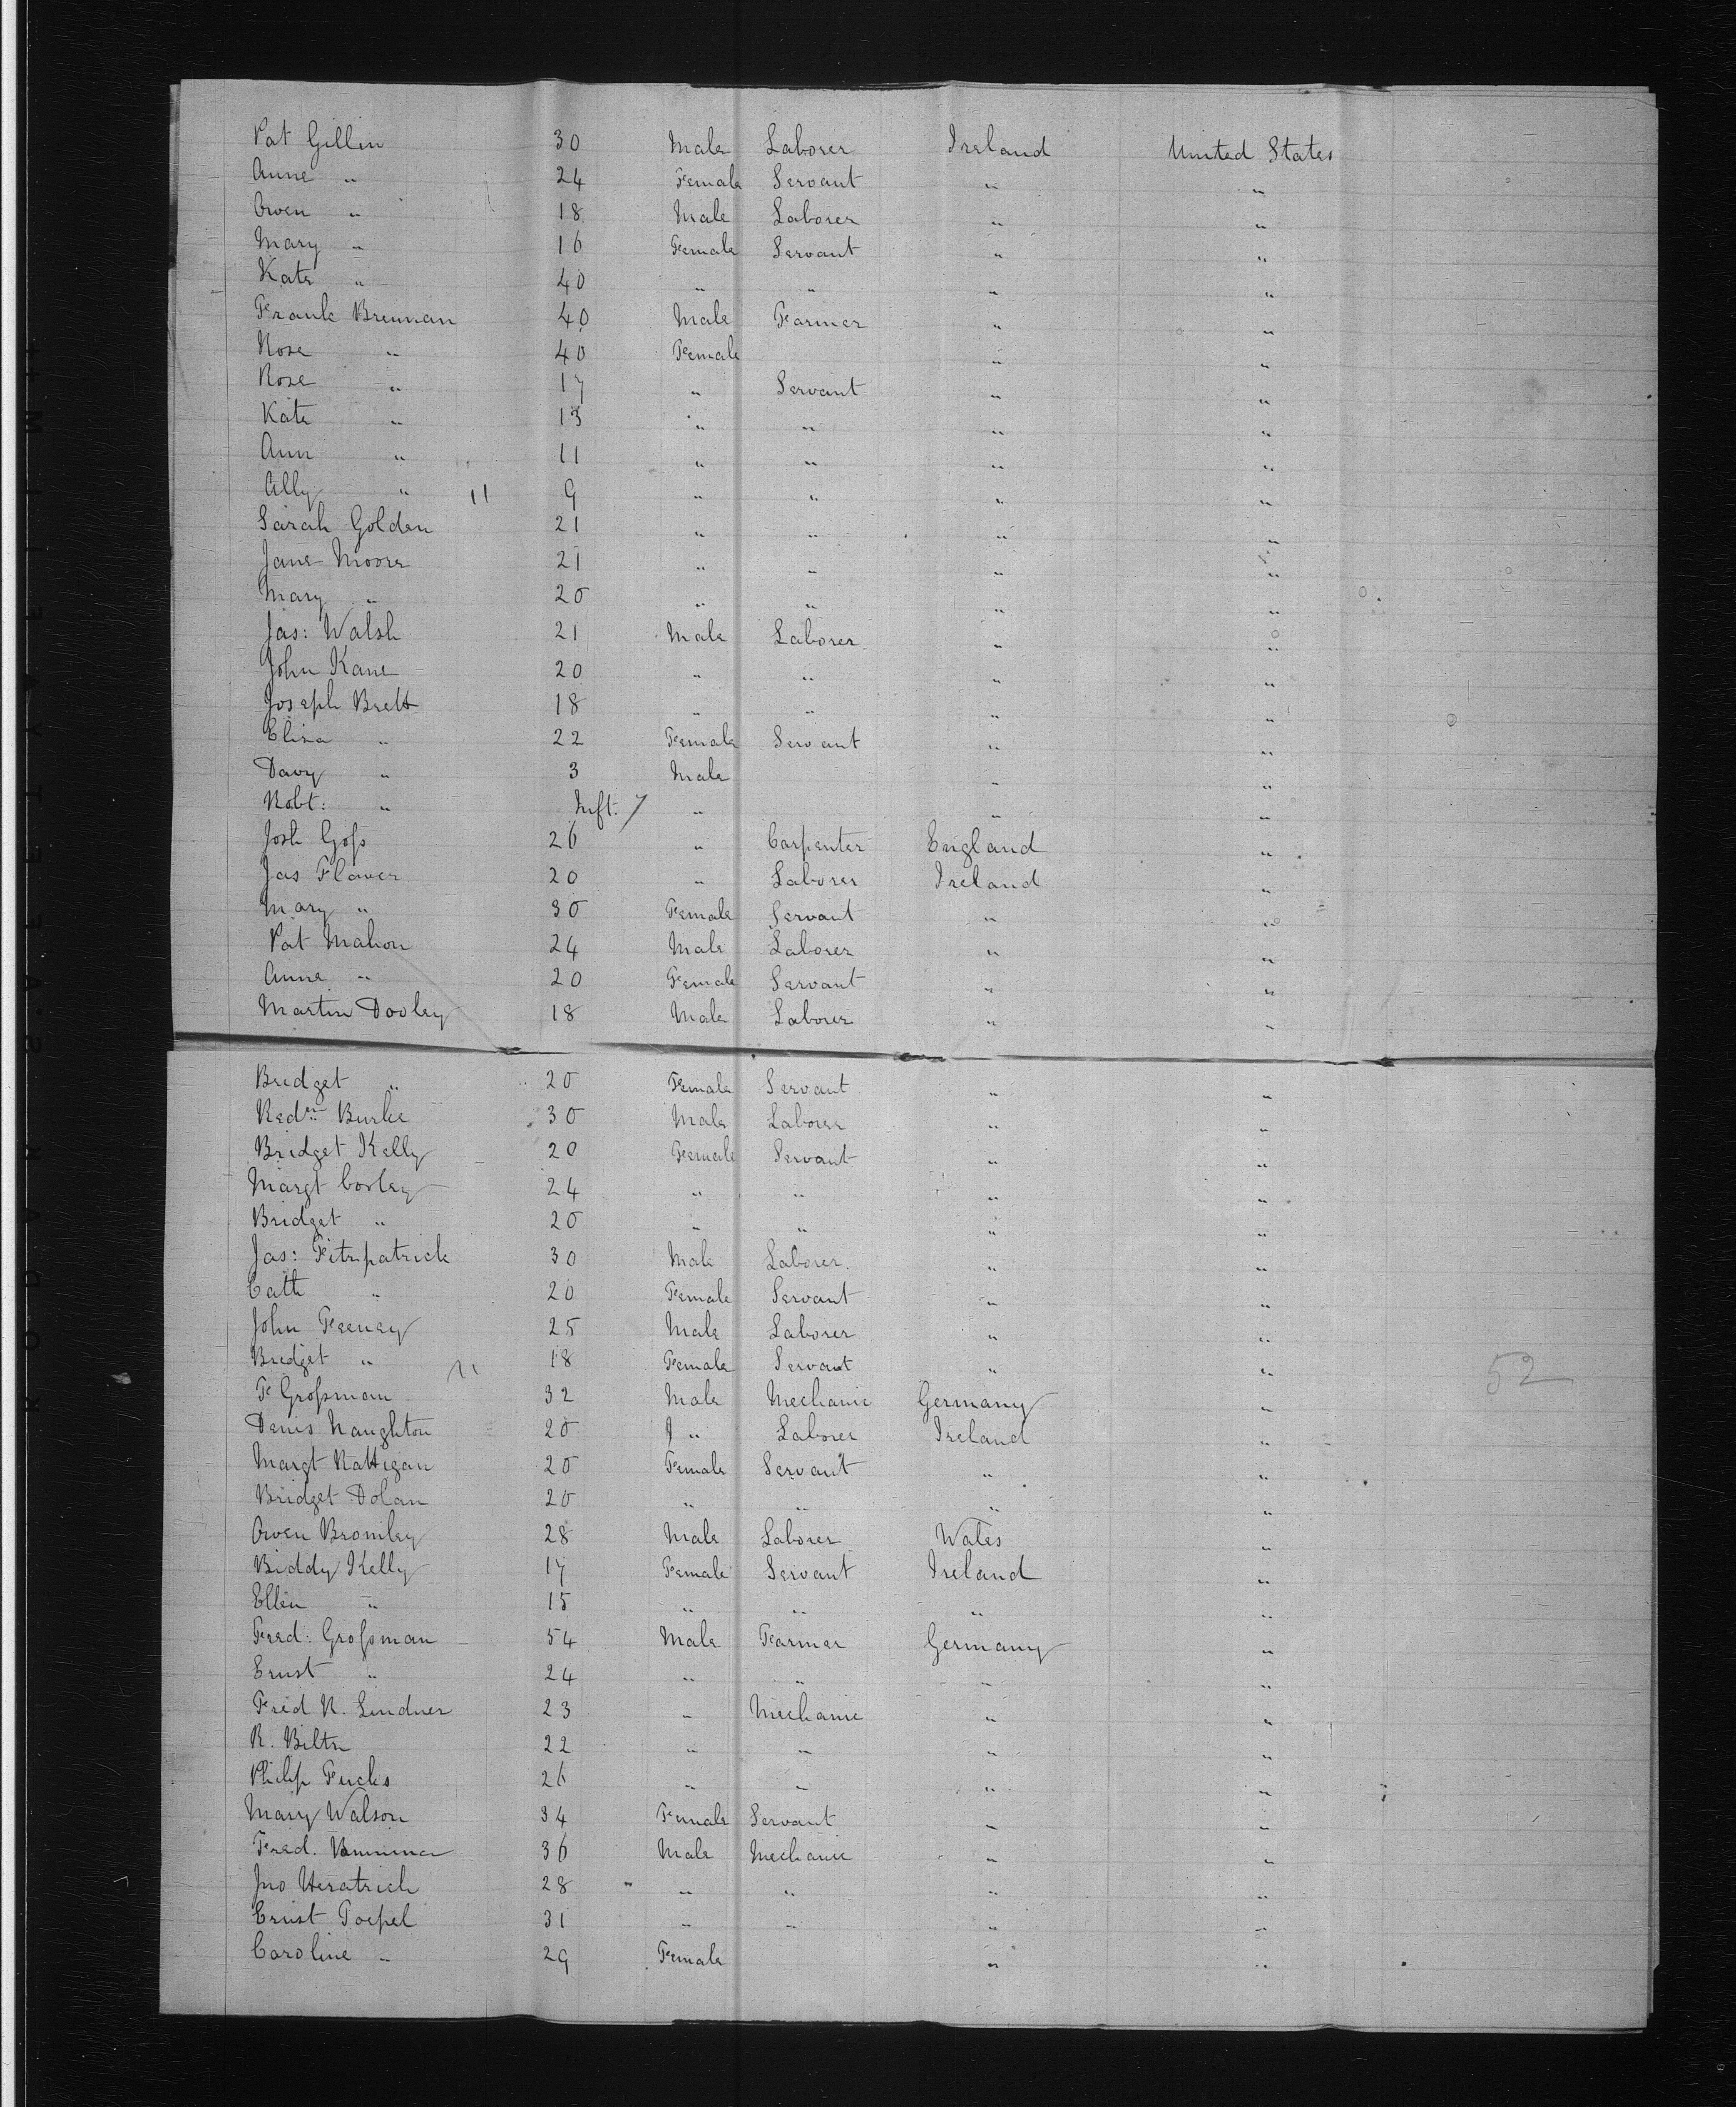 Pat Gillin 30 Male Laborer Ireland United States
Anne " 24 Female Servant " "
Owen " 18 Male Laborer " "
Mary " 16 Female Servant " "
Kate " 40 " " " "
Frank Brennan 40 Male Farmer " "
Rose " 40 Female " "
Rose " 17 " Servant " "
Kate " 13 " " " "
Ann " 11 " " " "
Ally " 11 9 " " " "
Sarah Golden 21 " " " "
Jane Moore 21 " " " "
Mary " 20 " " " "
Jas: Walsh 21 Male Laborer " "
John Kane 20 " " " "
Joseph Brett 18 " " " "
Eliza " 22 Female Servant " "
Davy " 3 Male " "
Robt: " Inft. 7 " " "
Josh Goſs 26 " Carpenter England "
Jas Flower 20 " Laborer Ireland "
Mary " 30 Female Servant " "
Pat Mahon 24 Male Laborer " "
Anne " 20 Female Servant " "
Martin Dooley 18 Male Laborer " "
Bridget " 20 Female Servant " "
Redm: Burke 30 Male Laborer " "
Bridget Kelly 20 Female Servant " "
Margt Corley 24 " " " "
Bridget " 20 " " " "
Jas: Fitzpatrick 30 Male Laborer. " "
Cath " 20 Female Servant " "
John Feeney 25 Male Laborer " "
Bridget " 11 18 Female Servant " " 52
F Groſsman 32 Male Mechanic Germany "
Denis Naughton 20 " Laborer Ireland "
Margt Rattigan 20 Female Servant " "
Bridget Dolan 20 " " " "
Owen Bromley 28 Male Laborer Wales "
Biddy Kelly 17 Female Servant Ireland "
Ellen " 15 " " " "
Fred: Groſsman 54 Male Farmer Germany "
Ernst " 24 " " " "
Fred R. Lindner 23 " Mechanic " "
R. Biltz 22 " " " "
Philip Fucks 26 " " " "
Mary Walson 34 Female Servant " "
Fred. 36 Male Mechanic " "
Jno Heratrich 28 " " " "
Ernst Toepel 31 " " " "
Caroline " 29 Female " "